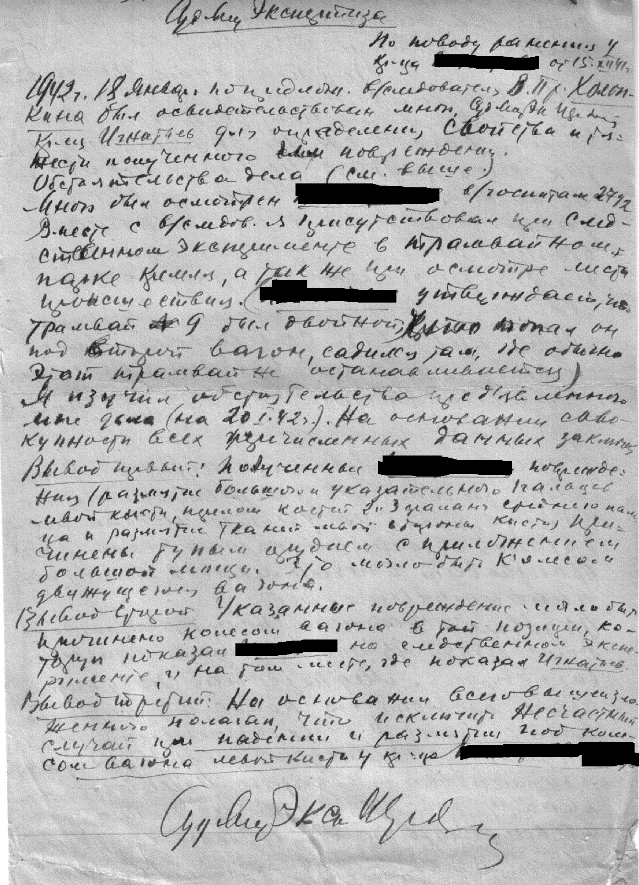 Суд. Мед. Экспертиза
По поводу ранения у
кр-ца от 15. XII 41 г.
1942 г. 18 января по предлож. в/следователя В. Пр.
кина был освидетельствован мной, Судмедэкспертом
Игнатьев для определения свойства и тя-
жести полученного повреждения.
Обстоятельства дела (см. выше).
Мною был осмотрен в/госпитал 2712
Вместе с в/следов. я присутствовал при след-
ственном эксперименте в трамвайном
парке, а так же при осмотре места
происшествия. ( утверждает, что
трамвай № 9 был двойной, попал он
под второй вагон, садился там, где обычно
этот трамвай не останавливается)
Я изучил обстоятельства предъявленного
мне дела (на 20 I. 42 г.). На основании сово-
купности всех перечисленных данных заключ.
Вывод первый: Полученные поврежде-
ния (размятие большого и указательного пальцев
левой кисти, перелом костей 2 и 3 фаланг среднего паль-
ца и размятие тканей левой стороны кисти) при-
чинены тупым орудием с приложением
большой мощи. Это могло быть колесом
движущегося вагона.
Вывод второй Указанные повреждение могло быть
причинено колесом вагона в той позиции, ко-
торую показал на следственном экспе-
рименте, и на том месте, где показал Игнатьев.
Вывод третий: На основании всего вышеизло-
женного полагаю, что исключить несчастный
случай при падении и размятии под коле-
сом вагона левой кисти у кр-ца
Суд Мед Эксп